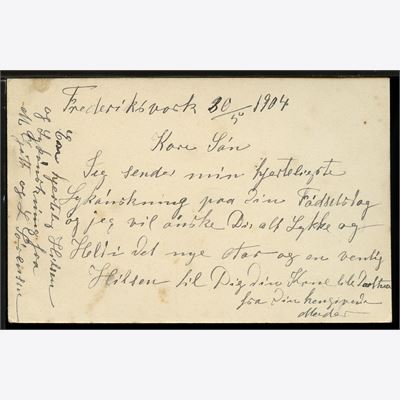 Frederiksværk 30/10 1904
Kære Søn
Jeg sender min hjerteligste
Lykønskning paa Din Fødselsdag
og jeg vil ønske Dig alt Lykke og
Held i det nye Aar og en venlig
Hilsen til Dig, din Kone lille
fra Din hengivende
Moder
En hjertelig Hilsen
og Lykønskning fra
og